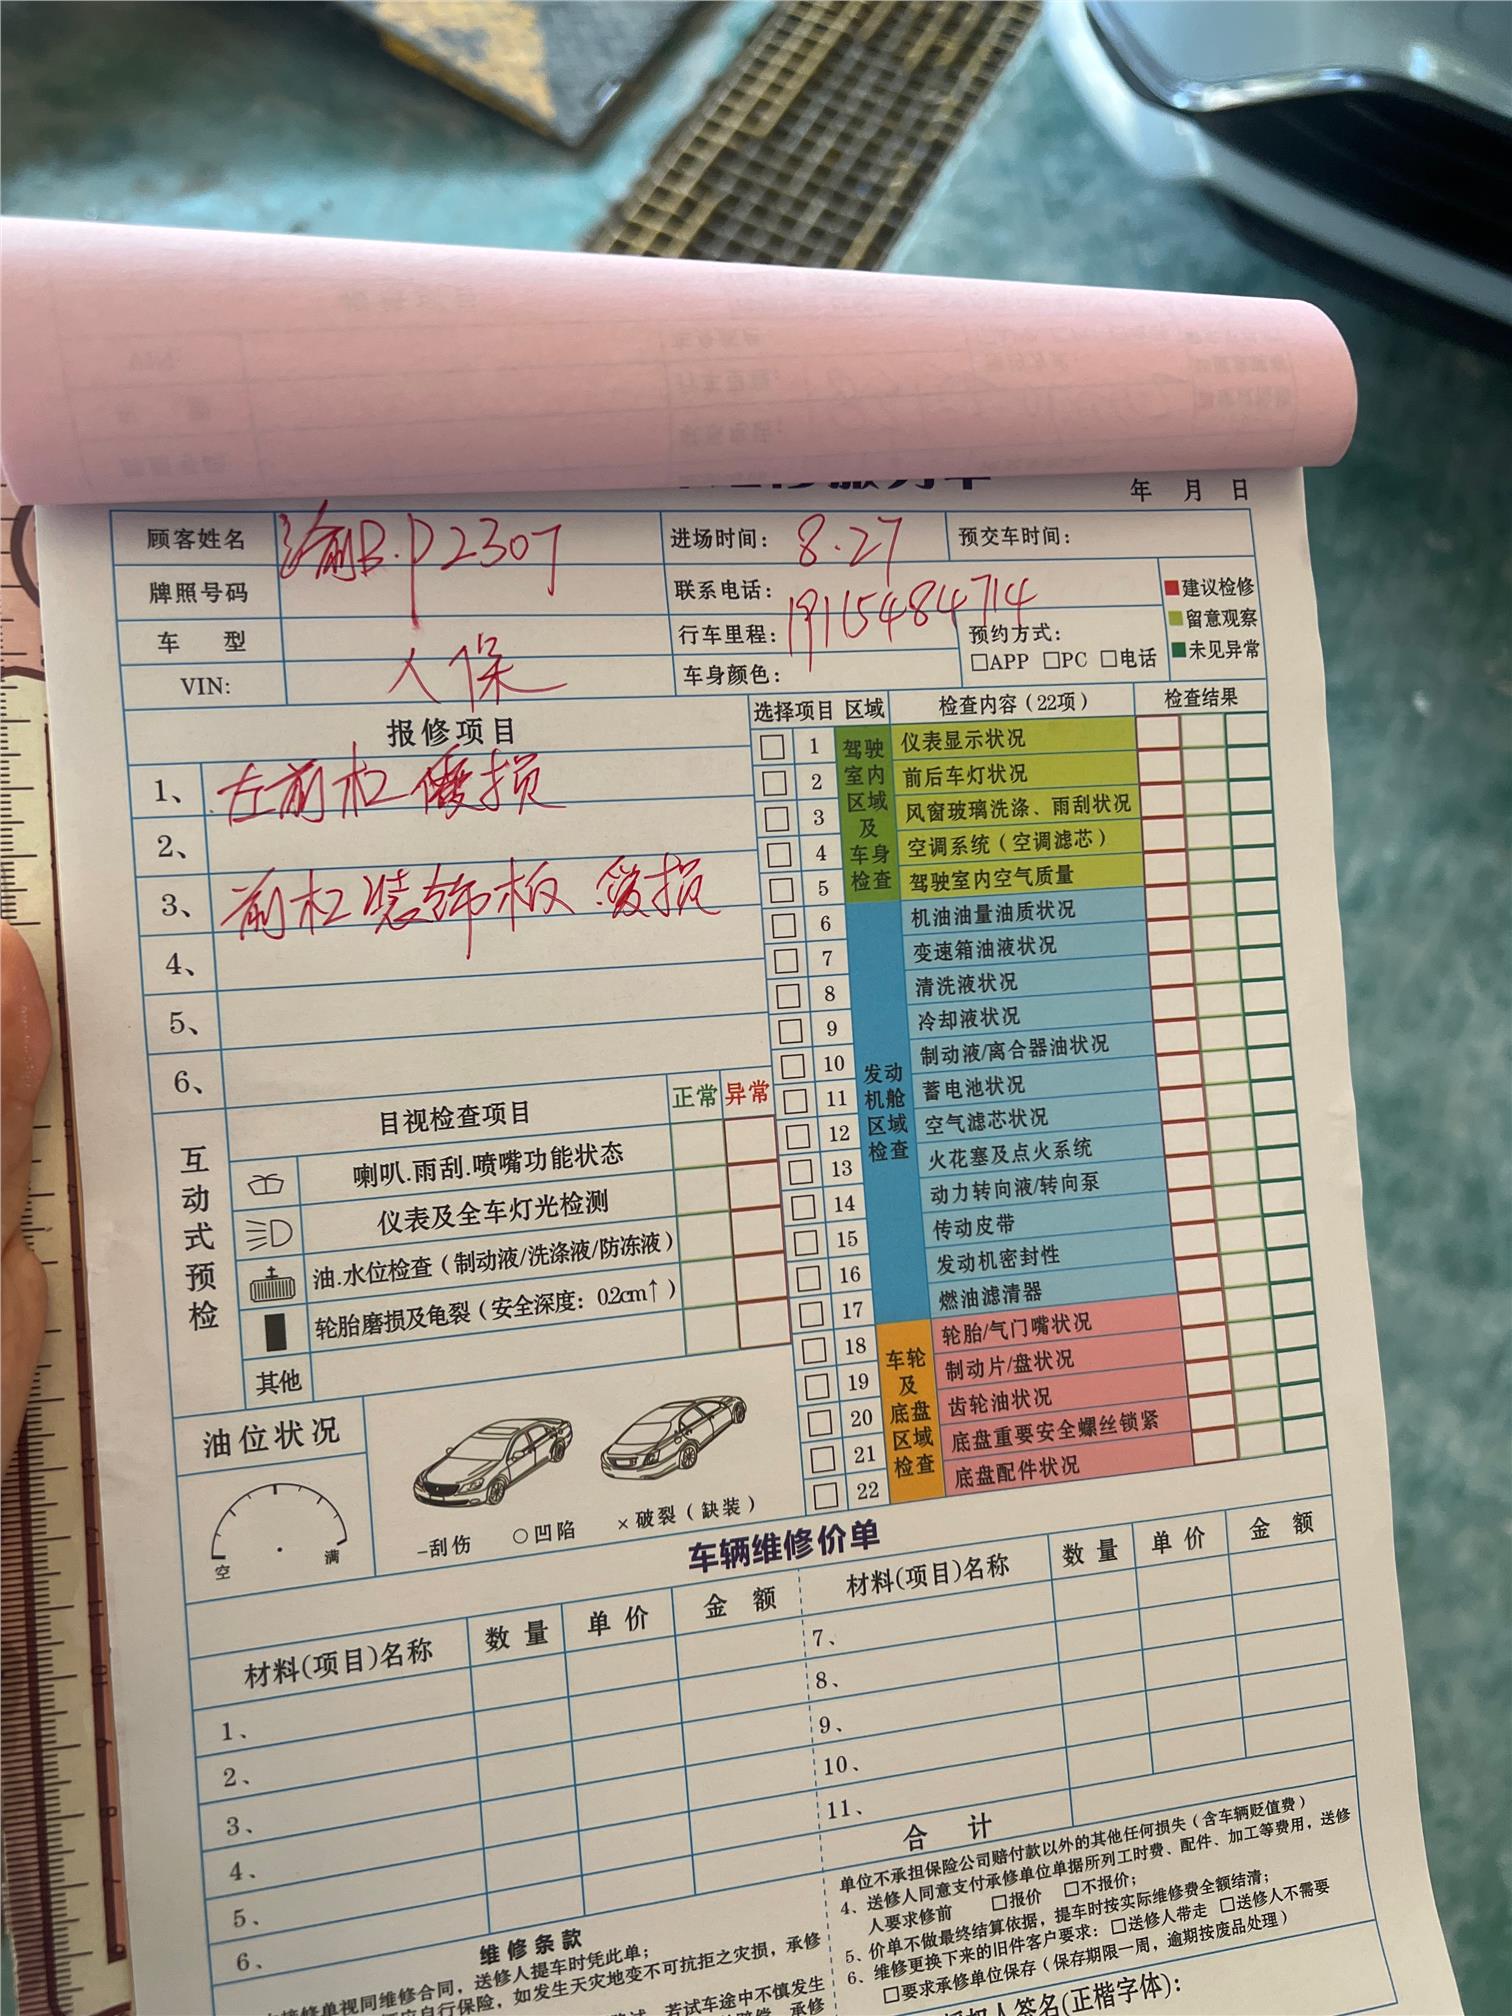 年 月 日
顾客姓名 渝B·P2307 进场时间： 8.27 预交车时间：
牌照号码 联系电话： 19115484714
车 型 行车里程： 预约方式：
□APP □PC □电话
VIN: 人保 车身颜色：
建议检修
留意观察
未见异常
报修项目
1、 左前杠 损
2、
3、 前杠装饰板 损
4、
5、
6、
选择项目 区域 检查内容（22项） 检查结果
驾驶室内区域及车身检查
1 仪表显示状况
2 前后车灯状况
3 风窗玻璃洗涤、雨刮状况
4 空调系统（空调滤芯）
5 驾驶室内空气质量
发动机舱区域检查
6 机油油量油质状况
7 变速箱油液状况
8 清洗液状况
9 冷却液状况
10 制动液/离合器油状况
11 蓄电池状况
12 空气滤芯状况
13 火花塞及点火系统
14 动力转向液/转向泵
15 传动皮带
16 发动机密封性
17 燃油滤清器
车轮及底盘区域检查
18 轮胎/气门嘴状况
19 制动片/盘状况
20 齿轮油状况
21 底盘重要安全螺丝锁紧
22 底盘配件状况
互动式预检
目视检查项目 正常 异常
喇叭.雨刮.喷嘴功能状态
仪表及全车灯光检测
油.水位检查（制动液/洗涤液/防冻液）
轮胎磨损及龟裂（安全深度：0.2cm↑）
其他
油位状况
空 满
-刮伤 ○凹陷 ×破裂（缺装）
车辆维修价单
材料(项目)名称 数量 单价 金额 材料(项目)名称 数量 单价 金额
1、
2、
3、
4、
5、
6、
7、
8、
9、
10、
11、
合 计
维修条款
接修单视同维修合同，送修人提车时凭此单；
应自行保险，如发生天灾地变不可抗拒之灾损，承修
若试车途中不慎发生
承修
单位不承担保险公司赔付款以外的其他任何损失（含车辆贬值费）
4、送修人同意支付承修单位单据所列工时费、配件、加工等费用，送修
人要求修前 □报价 □不报价；
5、价单不做最终结算依据，提车时按实际维修费全额结清；
6、维修更换下来的旧件客户要求：□送修人带走 □送修人不需要
□要求承修单位保存（保存期限一周，逾期按废品处理）
人签名(正楷字体)：